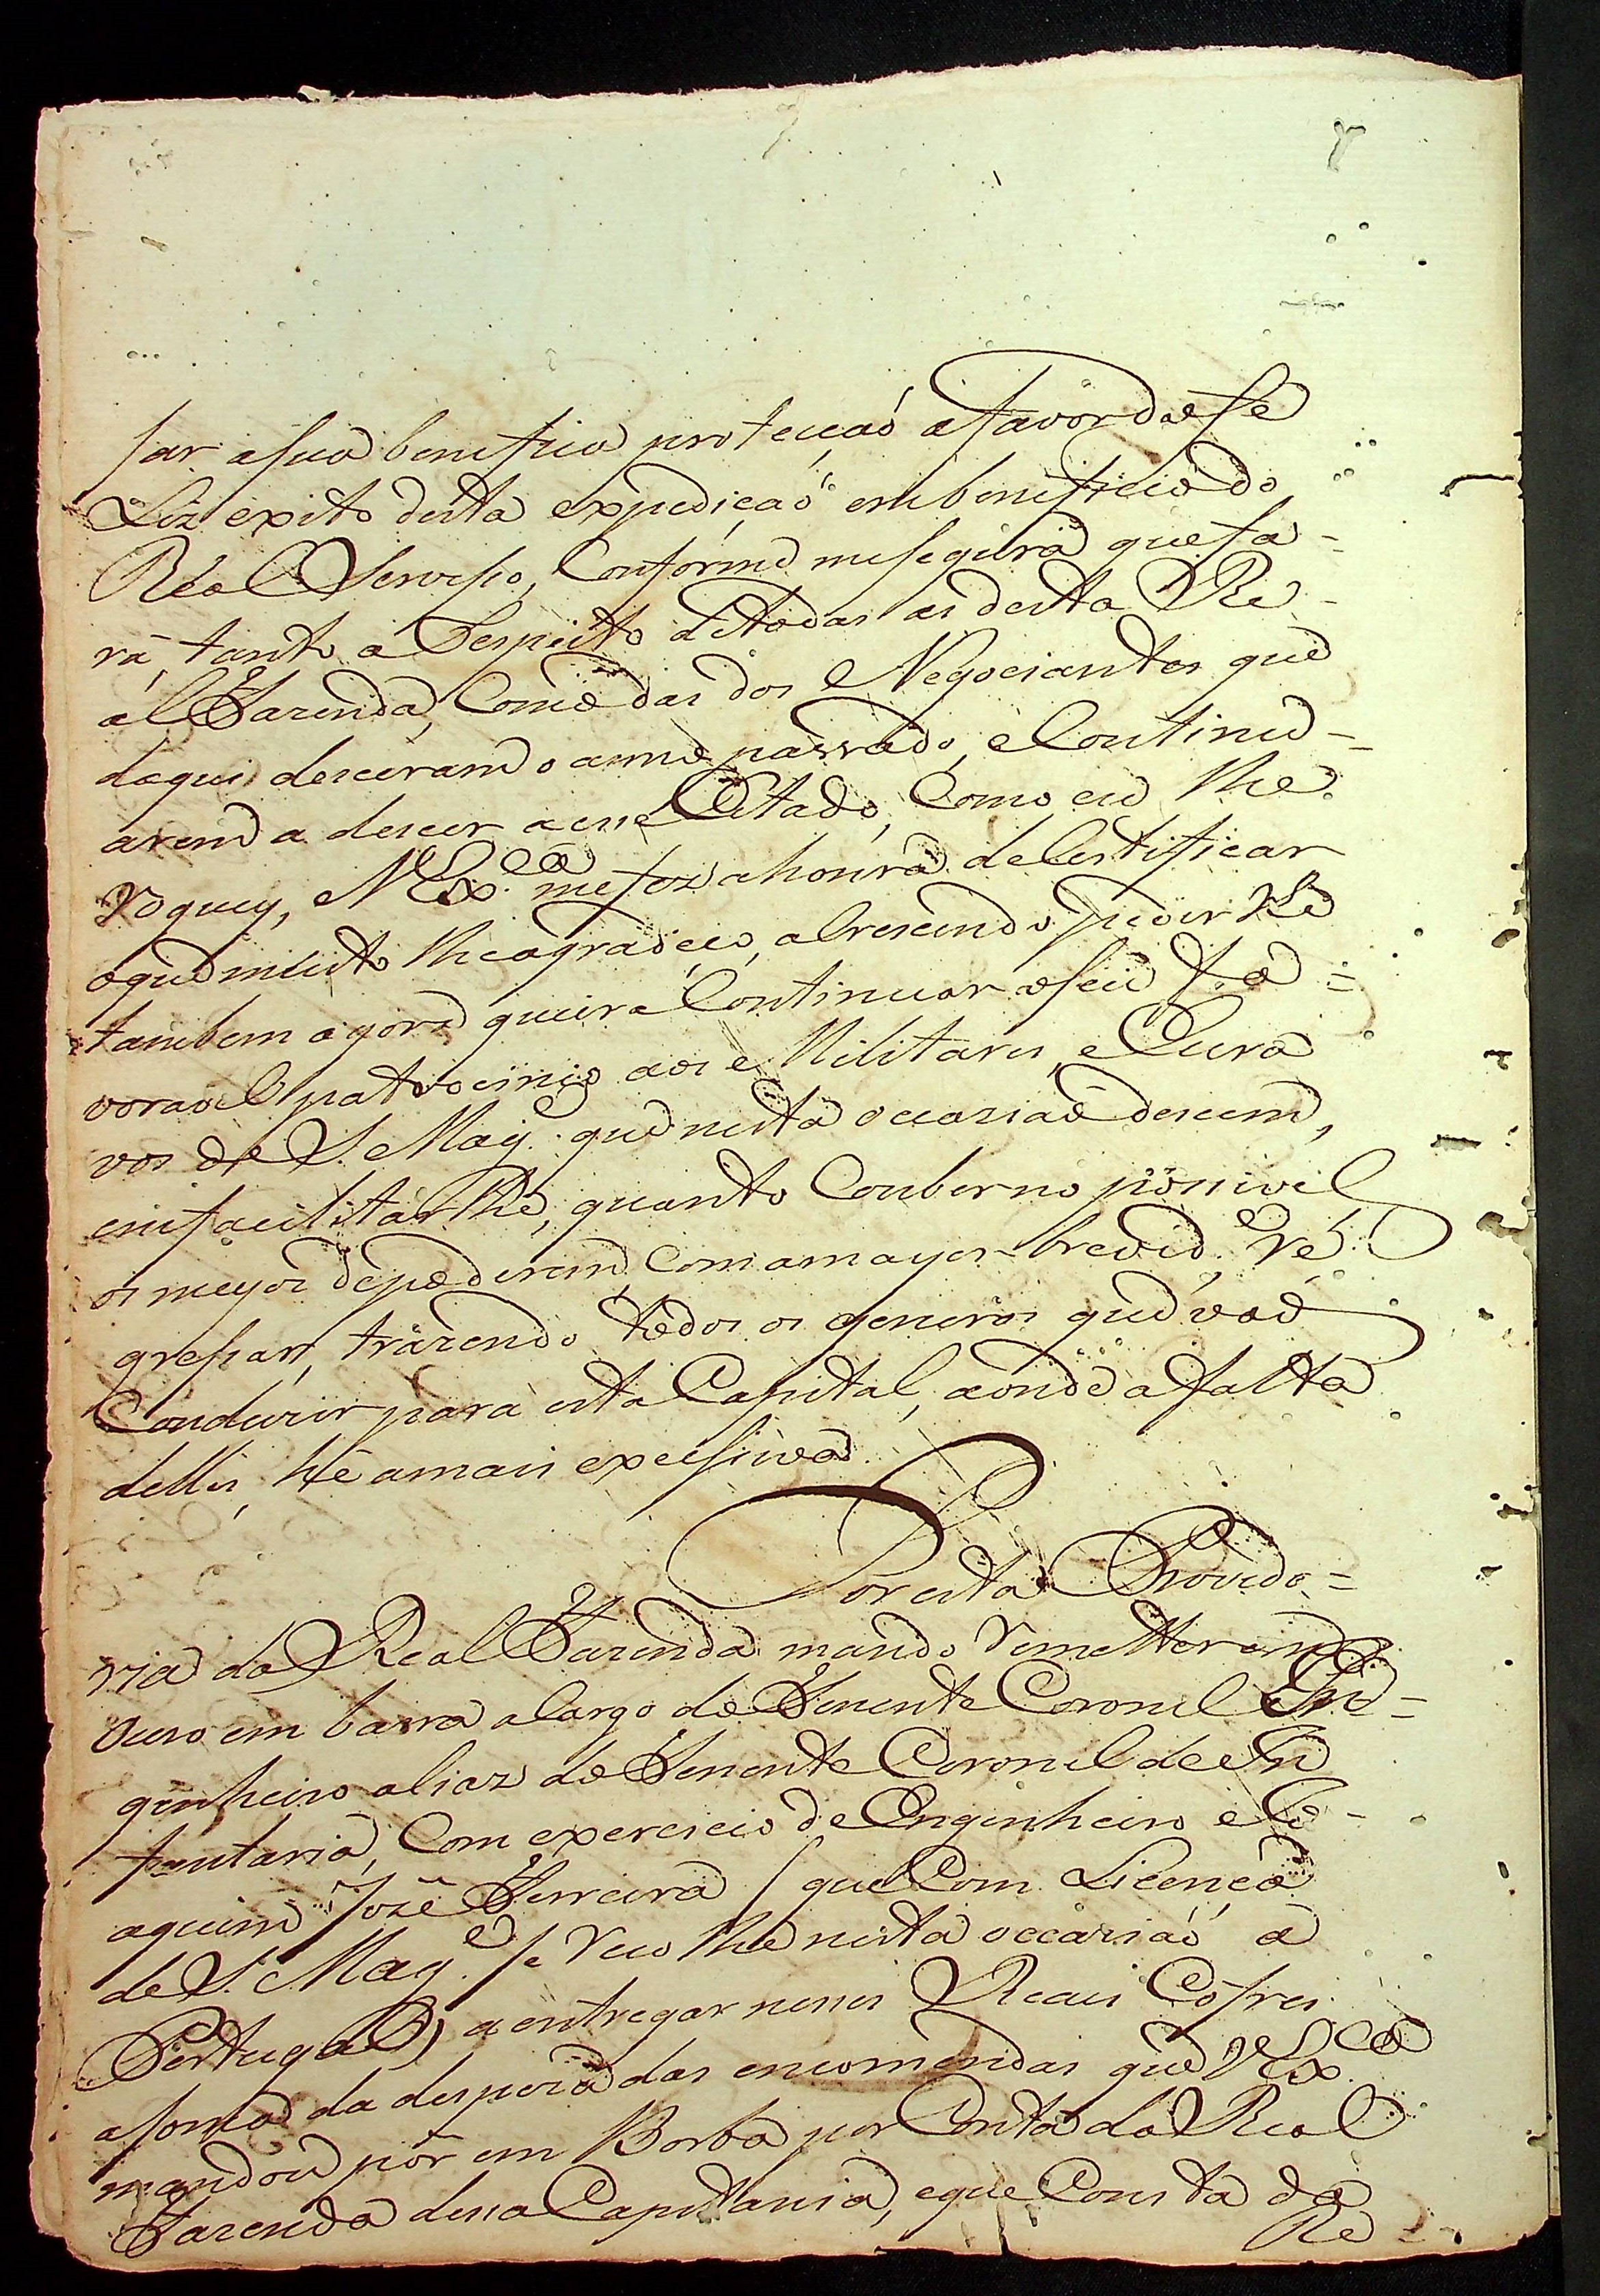 sar a sua benefica protecçaõ a favor do fe
Liz exito desta expediçaõ em beneficio do
Real Serviso, Conforme me segura que fa-
rá, tanto a Respeito de todas as desta Re-
al Fazenda, Como das dos Negociantes que
daqui desceram o anno passado, e Continu-
arem a descer a esse Estado, Como eu lhe
roguey, e V Ex.ca me fez a honra de Certificar
o que muito lhe agradeco, a Crescendo pedir lhe
tambem agora queira Continuar o seu Fa=
voravel patrocinio aos Militares, e Escra
vos de S. Mag.e que nesta occasiaõ descem,
em facilitar lhe, quanto Couber no possivel
os meyos de poderem, Com a mayor brevid.e Re
gressar, trazendo todos os generos que vaõ
Conduzir para esta Capital, aonde a falta
delles, hé a mais excessiva.
Por esta Provedo=
ria da Real Fazenda mando Remetter em
ouro em barra a Cargo do Tenente Coronel En-
ginheiro aliaz do Tenente Coronel de In
fantaria, Com exercicio de Enginheiro e Jo-
aquim José Ferreira / que Com Licença
de S. Mag.e se recolhe nesta occasiaõ a
Portugal) a entregar nesses Reais Cofres
a soma da despeza das encomendas que V Ex.ca
mandou pôr em Borba por Conta da Real
Fazenda dessa Capitania, e que Consta da
Re